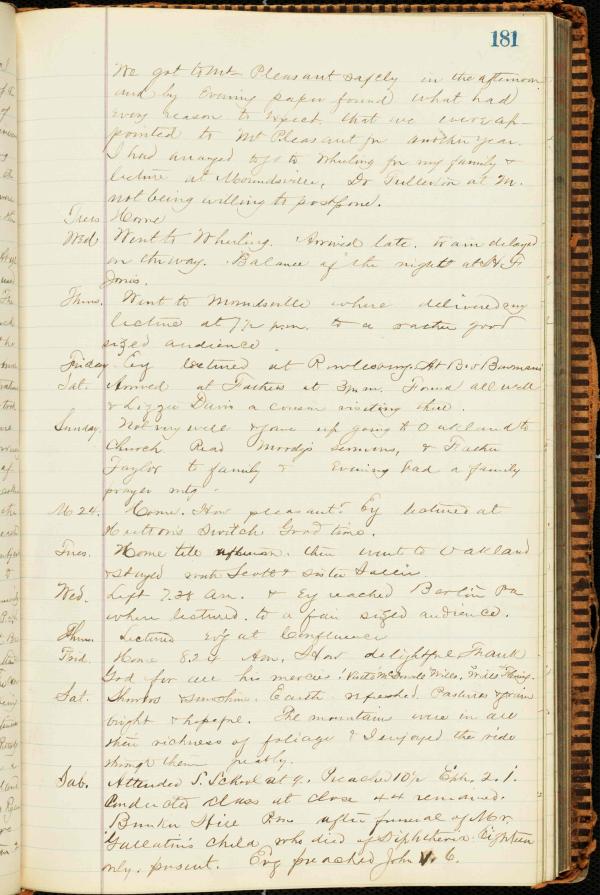 181
We got to Mt Pleasant safely in the afternoon
and by Evening paper found what had
every reason to expect that we were ap-
pointed to Mt Pleasant for another year.
I had arranged to go to Wheeling for my family &
lecture at Moundsville, Dr Fullerton at M.
not being willing to postpone.
Tues Home
Wed Went to Wheeling. Arrived late. train delayed
on the way. Balance of the night at H F
Jones.
Thurs. Went to Moundsville where delivered my
lecture at 7½ p.m. to a rather good
sized audience
Friday Evg lectured at Rowlesburg. At B. & Bowmans
Sat. Arrived at Fathers at 3 p.m. Found all well
& Lizzie Davis a cousin visiting there.
Sunday Not very well & gave up going to Oakland to
Church. Read Moodys sermons, & Father
Taylor to family & Evening had a family
prayer mtg.
M 24. Home. How pleasant! Eg lectured at
Hutton's Switch Good time.
Tues. Home till afternoon. then went to Oakland
& stayed with Scott & sister
Wed. Left 7.38 am. & Eg reached Berlin Pa
where lectured. to a fair sized audience.
Thurs. Lectured evg at Confluence
Frid. Home 8.20 How delightful Thank
God for all his mercies!
Sat. Showers & sunshine. Earth refreshed. Pastures & grain
bright & hopeful. The mountains were in all
their richness of foliage & I enjoyed the ride
through them greatly.
Sab. Attended S. School at 9. Preached 10½ Eph. 2.1.
Conducted class at close 44 remained.
Bunker Hill P.m. after funeral of Mr.
Gallatin's child, who died of Diphtheria Eighteen
only. present. Evg preached John V. 6.